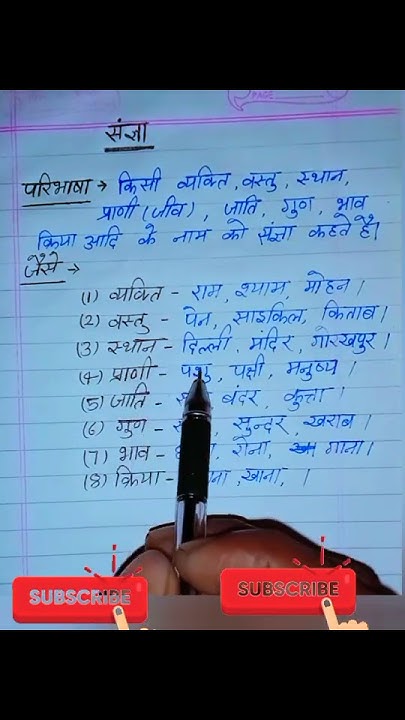 PAGE
संज्ञा
परिभाषा → किसी व्यक्ति, वस्तु, स्थान,
प्राणी (जीव), जाति, गुण, भाव
क्रिया आदि के नाम को संज्ञा कहते हैं।
जैसे →
(1) व्यक्ति - राम, श्याम, मोहन।
(2) वस्तु - पेन, साइकिल, किताब।
(3) स्थान - दिल्ली, मंदिर, गोरखपुर।
(4) प्राणी - पशु, पक्षी, मनुष्य।
(5) जाति - बंदर, कुत्ता।
(6) गुण - सुन्दर, खराब।
(7) भाव - रोना, गाना।
(8) क्रिया - खाना, ।
SUBSCRIBE
SUBSCRIBE